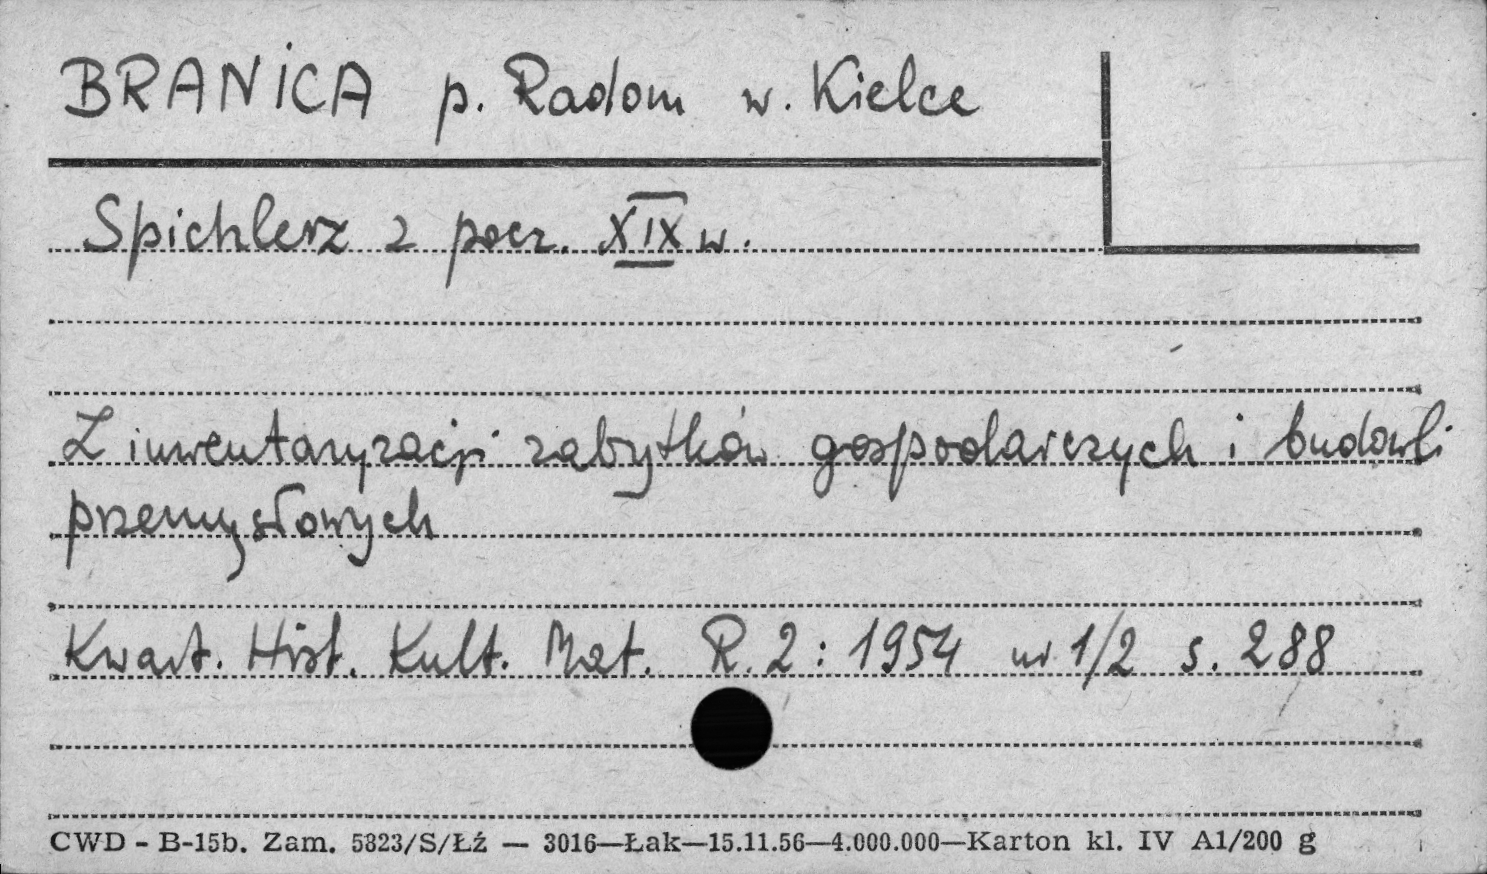 BRANICA p. Radom w. Kielce
Spichlerz z pocz. XIX w.
Z inwentaryzacji zabytków gospodarczych i budowli
przemysłowych
Kwart. Hist. Kult. Mat. R. 2 : 1954 nr 1/2 s. 288
CWD - B-15b. Zam. 5823/S/Łź — 3016—Łak—15.11.56—4.000.000—Karton kl. IV A1/200 g